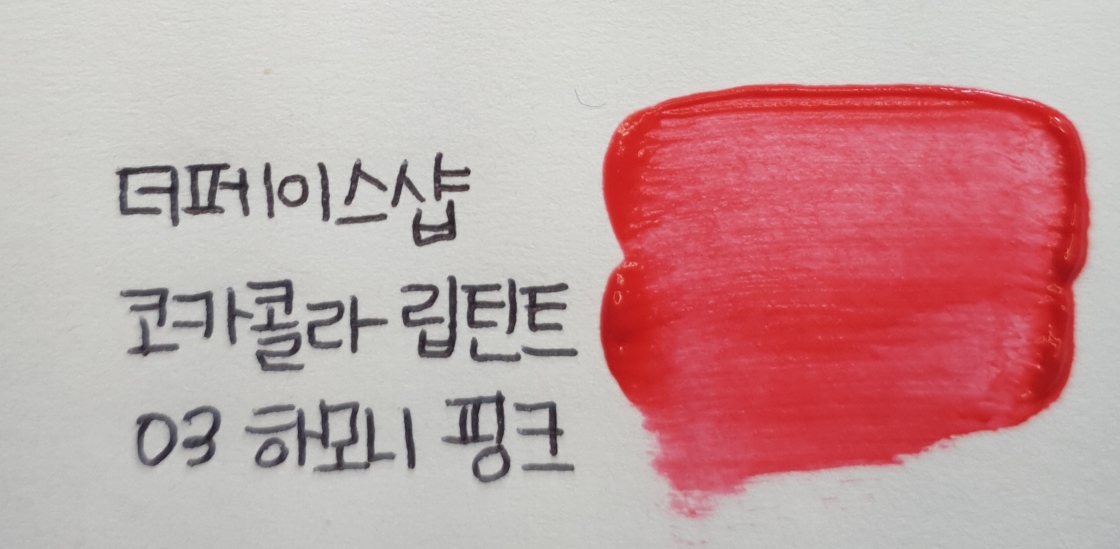 더페이스샵
코카콜라 립틴트
03 하모니 핑크